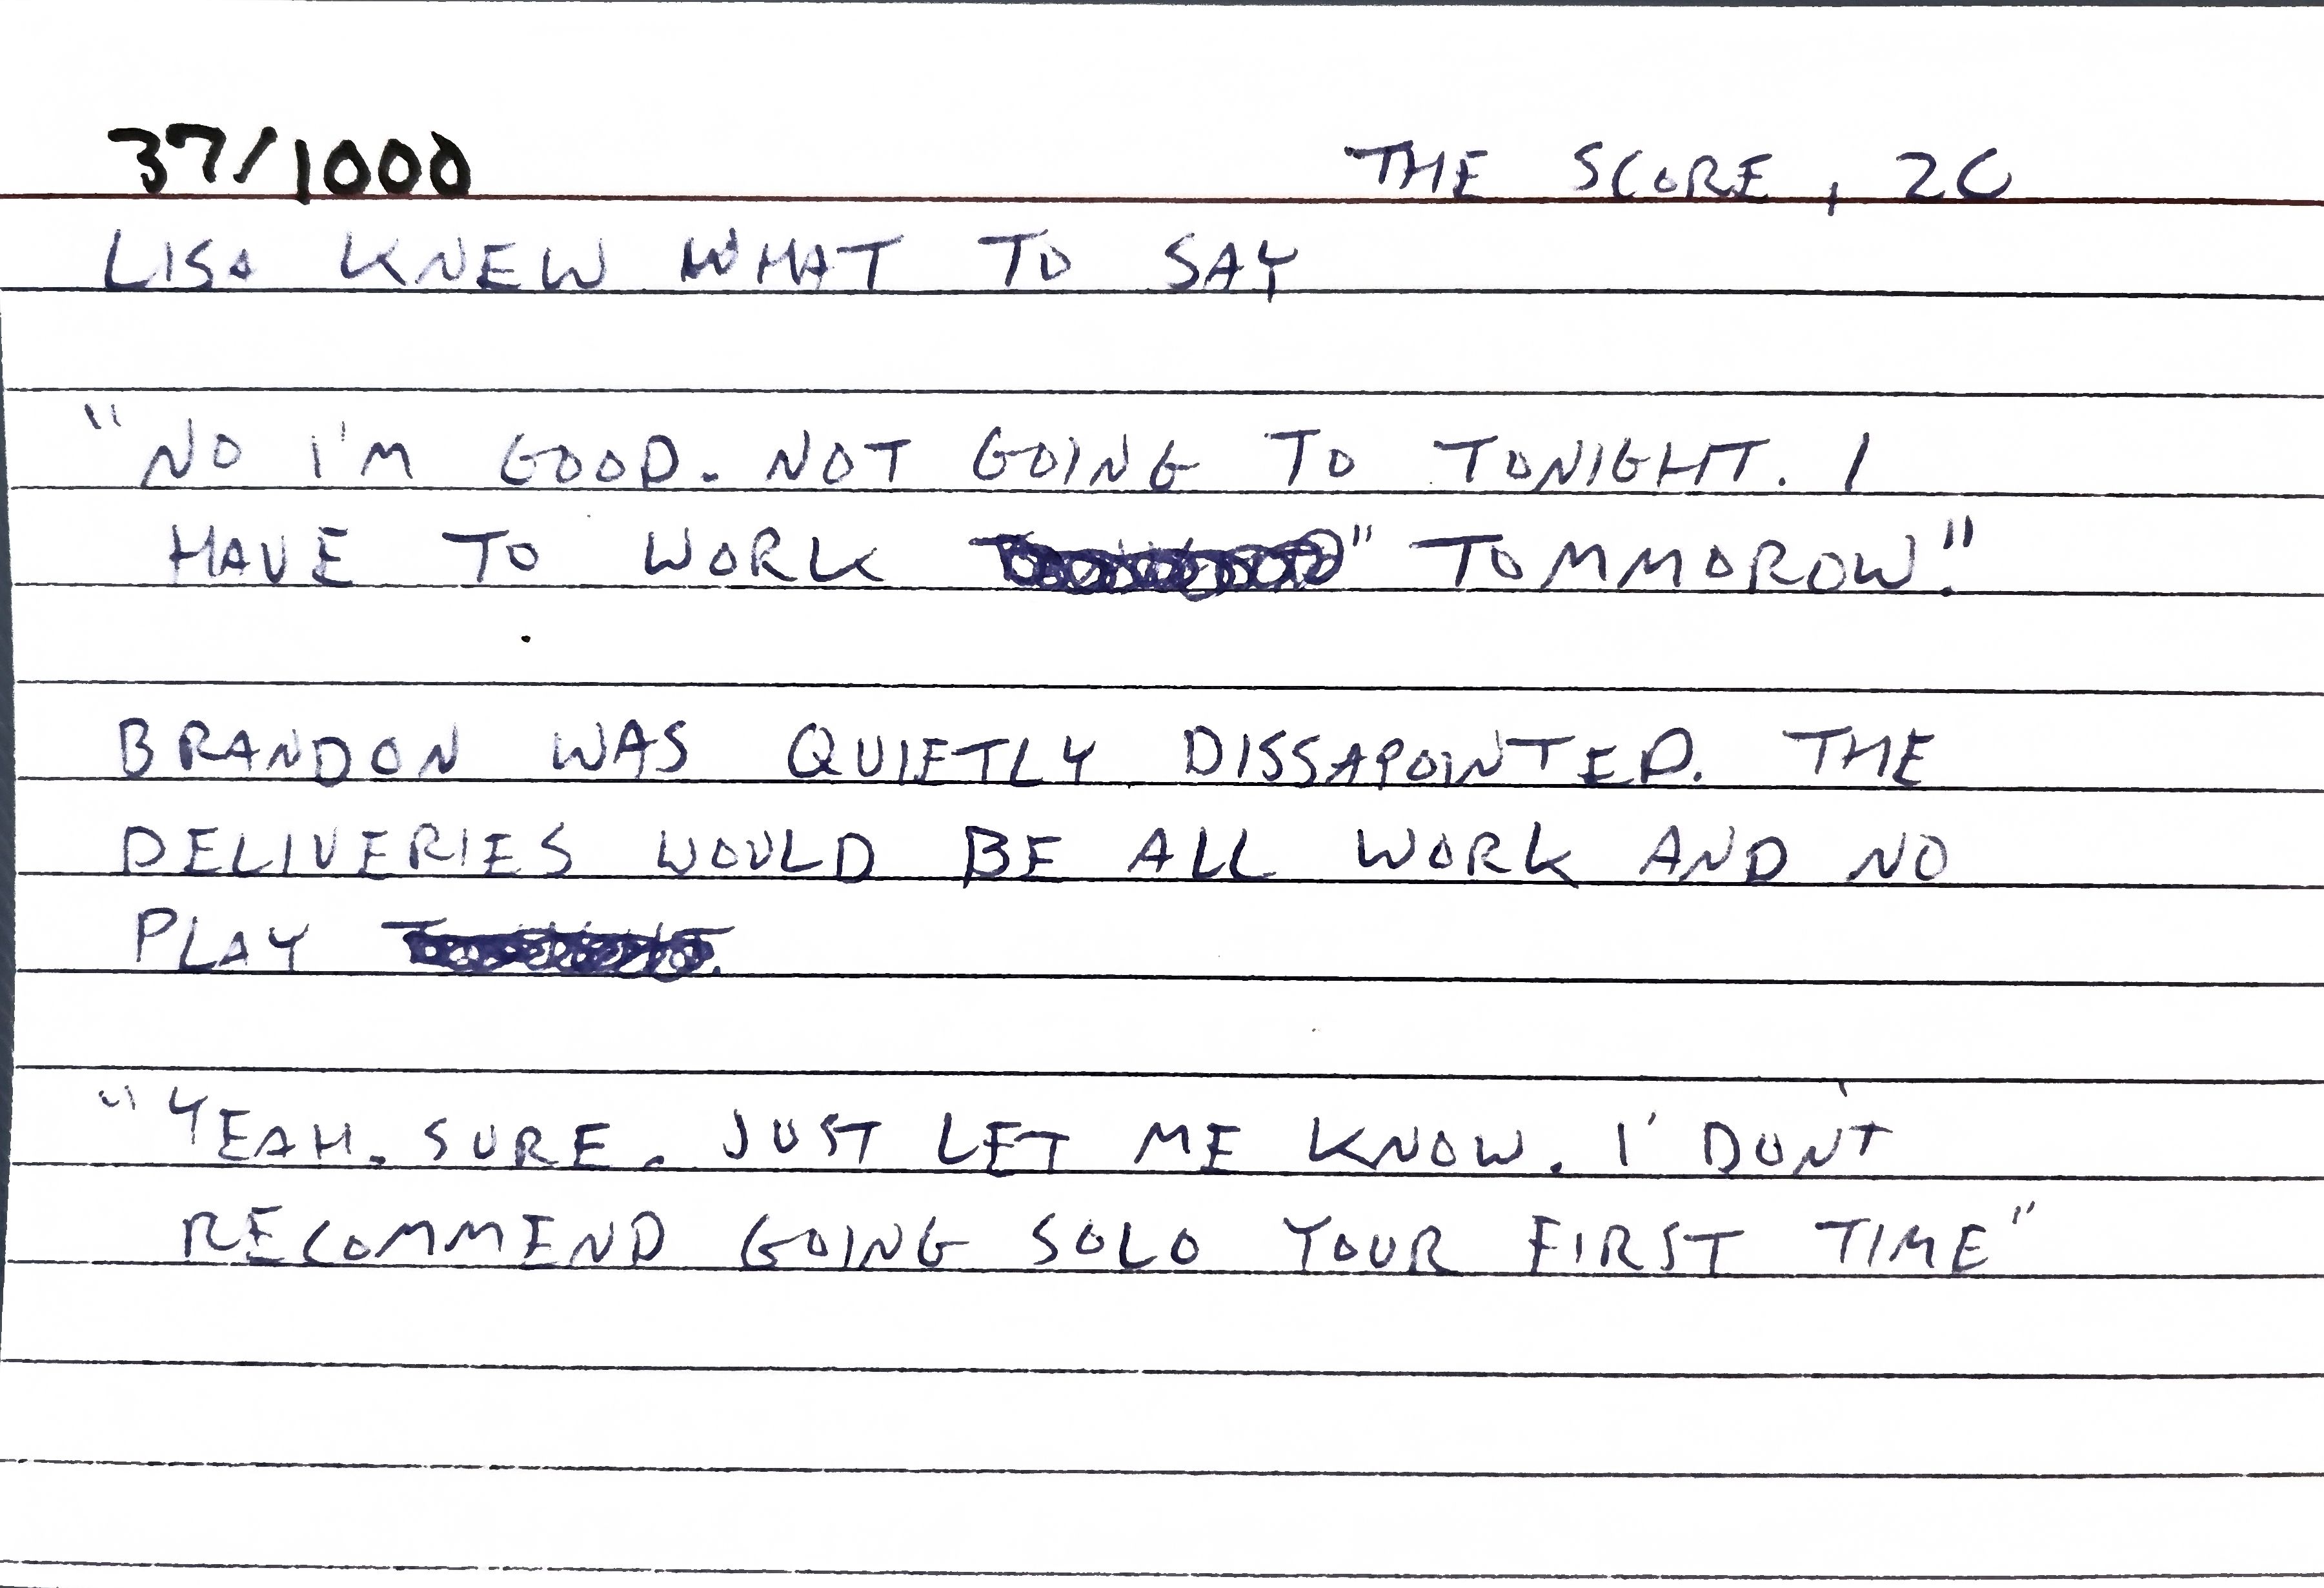 37/1000 THE SCORE, 2C
LISA KNEW WHAT TO SAY
"NO I'M GOOD. NOT GOING TO TONIGHT. I
HAVE TO WORK " TOMMOROW."
BRANDON WAS QUIETLY DISSAPOINTED. THE
DELIVERIES WOULD BE ALL WORK AND NO
PLAY
"YEAH. SURE. JUST LET ME KNOW. I DON'T
RECOMMEND GOING SOLO YOUR FIRST TIME"